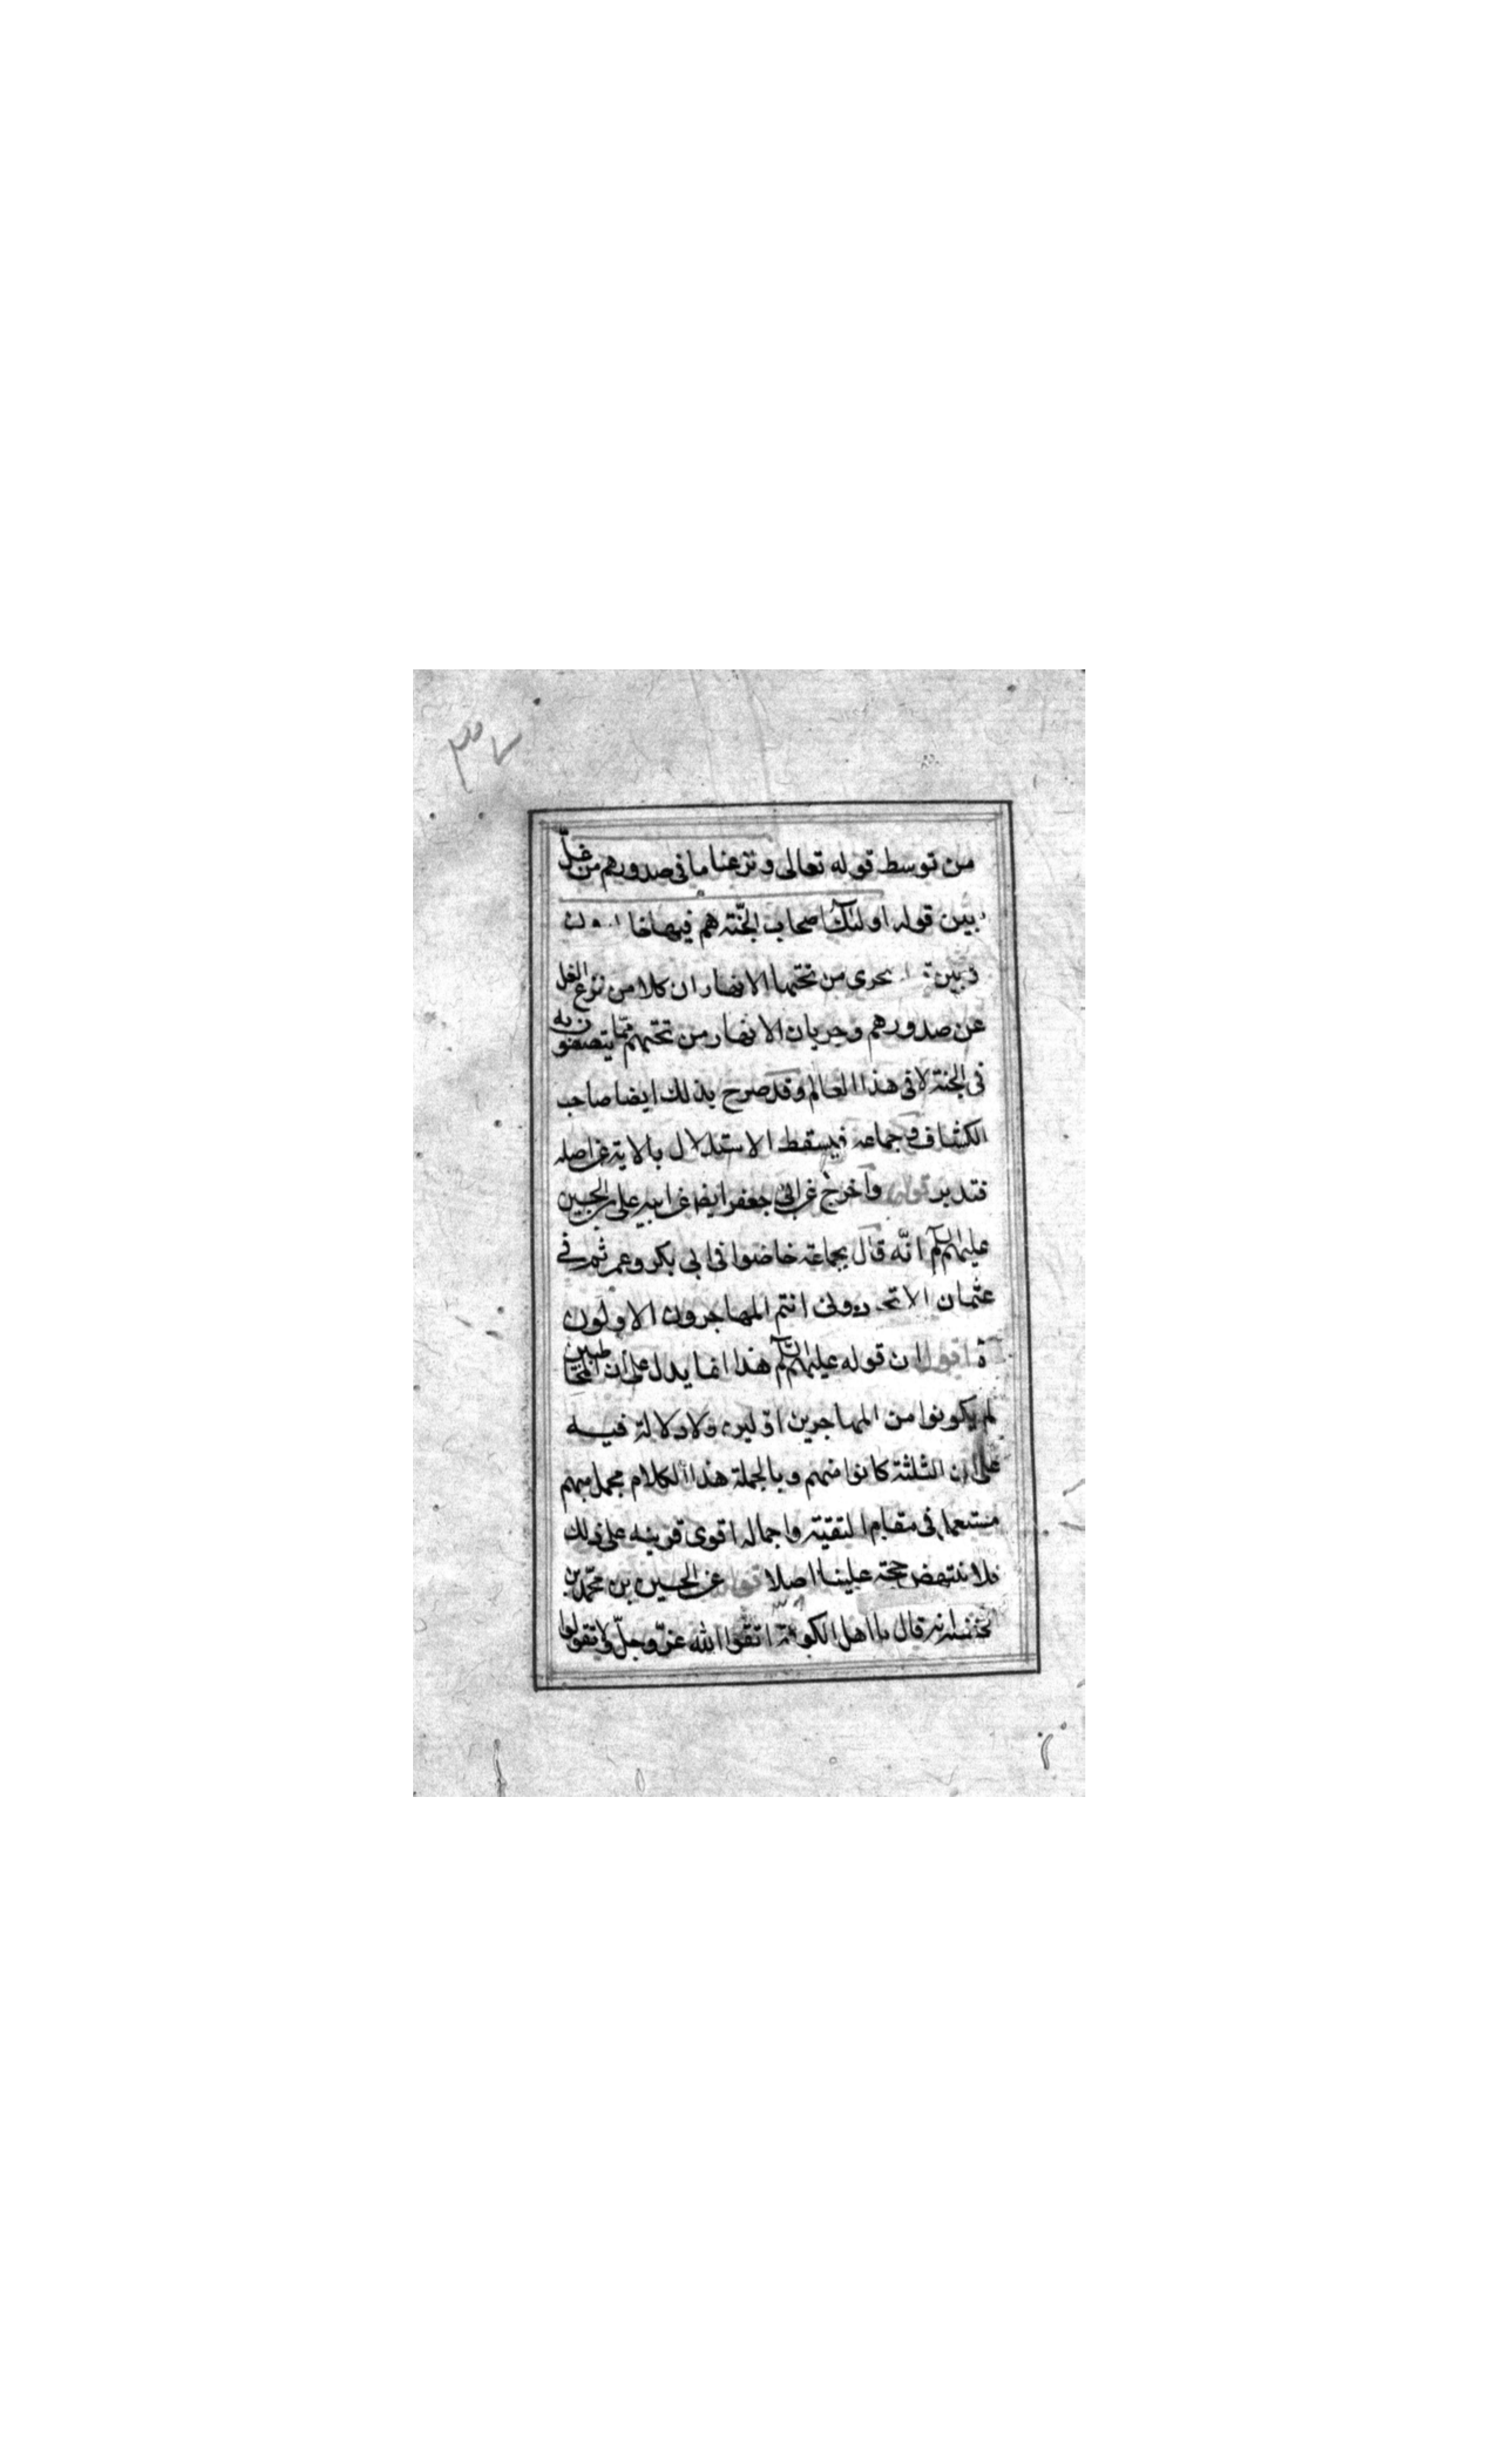 ٣٧
من توسط قوله تعالى ونزعنا ما فى صدورهم من غلّ
بين قوله اولئك اصحاب الجنّة هم فيها خا ون
وبين تحرى من تحتها الانهار ان كلا من نزع الغل
عن صدورهم وجريان الانهار من تحتهم ممّا يتصفون به
فى الجنة لا فى هذا العالم وقد صرح بذلك ايضا صاحب
الكشاف وجماعه فيسقط الاستدلال بالاية عن اصله
فتدبر قوله واخرج عن ابى جعفر ايضا عن ابيه على بن الحسين
عليهم السلام انّه قال لجماعة خاضوا فى ابى بكر وعمر ثم فى
عثمان الا تخبرونى انتم المهاجرون الاولون
ة اقول ان قوله عليهم السلام هذا انما يدل على ان المخاطبين
لم يكونوا من المهاجرين اولين ولا دلالة فيه
على ان الثلثة كانوا منهم وبالجملة هذا الكلام مجمل مبهم
مستعمل فى مقام التقية واجماله اقوى قرينه على ذلك
فلا ينتهض حجة علينا اصلا قوله عن الحسين بن محمّد بن
الحنفية انه قال يا اهل الكوفة اتقوا الله عزّ وجلّ ولا تقولوا